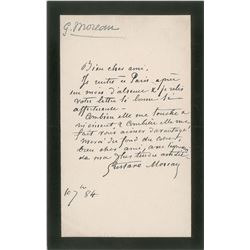 G. Moreau
Bien cher ami.
Je rentre à Paris, après
un mois d'absence & je relis
votre lettre si bonne si
affectueuse.
Combien elle me touche &
m'émeut, & combien elle me
fait vous aimer davantage
merci du fond du cœur,
bien cher ami,
de ma plus tendre amitié
Gustave Moreau
84